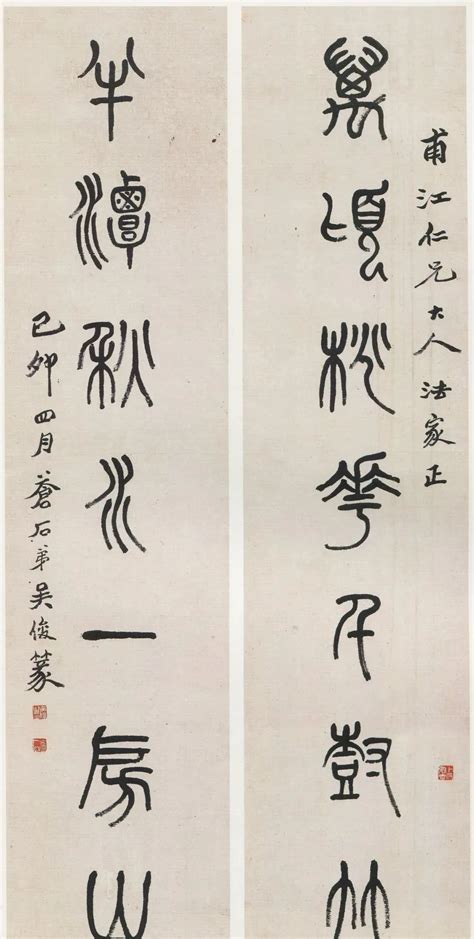 甫江仁兄大人法家正
萬頃桃華千尌竹
半潭秋水一房山
己卯四月蒼石弟吳俊篆